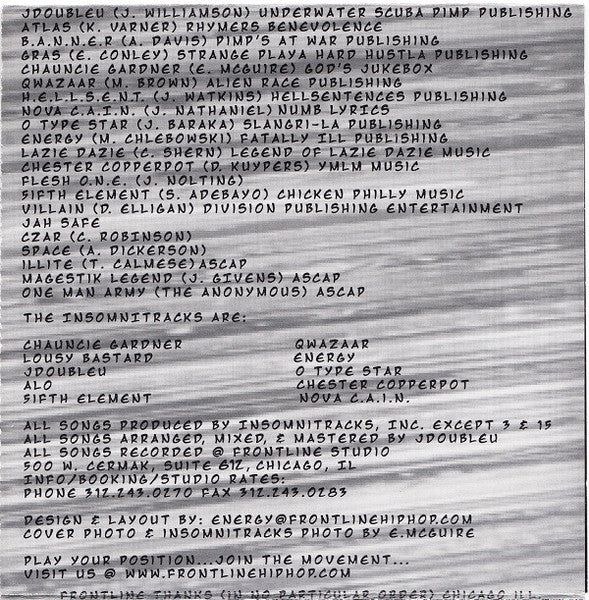 JDOUBLEU (J. WILLIAMSON) UNDERWATER SCUBA PIMP PUBLISHING
ATLAS (K. VARNER) RHYMERS BENEVOLENCE
B.A.N.N.E.R (A. DAVIS) PIMP'S AT WAR PUBLISHING
GRAS (E. CONLEY) STRANGE PLAYA HARD HUSTLA PUBLISHING
CHAUNCIE GARDNER (E. MCGUIRE) GOD'S JUKEBOX
QWAZAAR (M. BROWN) ALIEN RACE PUBLISHING
H.E.L.L.S.E.N.T. (J. WATKINS) HELLSENTENCES PUBLISHING
NOVA C.A.I.N. (J. NATHANIEL) NUMB LYRICS
O TYPE STAR (J. BARAKA) SLANGRI-LA PUBLISHING
ENERGY (M. CHLEBOWSKI) FATALLY ILL PUBLISHING
LAZIE DAZIE (C. SHERN) LEGEND OF LAZIE DAZIE MUSIC
CHESTER COPPERPOT (D. KUYPERS) YMLM MUSIC
FLESH O.N.E. (J. NOLTING)
5IFTH ELEMENT (S. ADEBAYO) CHICKEN PHILLY MUSIC
VILLAIN (D. ELLIGAN) DIVISION PUBLISHING ENTERTAINMENT
JAH SAFE
CZAR (C. ROBINSON)
SPACE (A. DICKERSON)
ILLITE (T. CALMESE) ASCAP
MAGESTIK LEGEND (J. GIVENS) ASCAP
ONE MAN ARMY (THE ANONYMOUS) ASCAP
THE INSOMNITRACKS ARE:
CHAUNCIE GARDNER QWAZAAR
LOUSY BASTARD ENERGY
JDOUBLEU O TYPE STAR
ALO CHESTER COPPERPOT
5IFTH ELEMENT NOVA C.A.I.N.
ALL SONGS PRODUCED BY INSOMNITRACKS, INC. EXCEPT 3 & 15
ALL SONGS ARRANGED, MIXED, & MASTERED BY JDOUBLEU
ALL SONGS RECORDED @ FRONTLINE STUDIO
500 W. CERMAK, SUITE 612, CHICAGO, IL
INFO/BOOKING/STUDIO RATES:
PHONE 312.243.0270 FAX 312.243.0283
DESIGN & LAYOUT BY: ENERGY@FRONTLINEHIPHOP.COM
COVER PHOTO & INSOMNITRACKS PHOTO BY E.MCGUIRE
PLAY YOUR POSITION...JOIN THE MOVEMENT...
VISIT US @ WWW.FRONTLINEHIPHOP.COM
FRONTLINE THANKS (IN NO PARTICULAR ORDER) CHICAGO ILL.